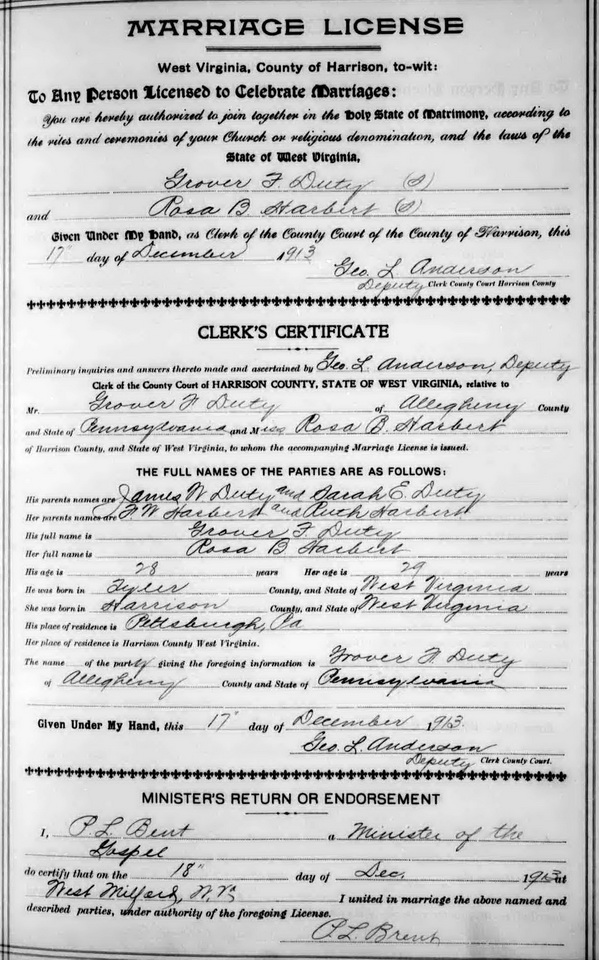 MARRIAGE LICENSE
West Virginia, County of Harrison, to-wit:
To Any Person Licensed to Celebrate Marriages:
You are hereby authorized to join together in the Holy State of Matrimony, according to
the rites and ceremonies of your Church or religious denomination, and the laws of the
State of West Virginia,
Grover F. Duty (S)
and Rosa B. Harbert (S)
Given Under My Hand, as Clerk of the County Court of the County of Harrison, this
17" day of December 1913
Geo. L. Anderson
Deputy Clerk County Court Harrison County
CLERK'S CERTIFICATE
Preliminary inquiries and answers thereto made and ascertained by Geo. L. Anderson, Deputy
Clerk of the County Court of HARRISON COUNTY, STATE OF WEST VIRGINIA, relative to
Mr. Grover F. Duty of Allegheny County
and State of Pennsylvania and Miss Rosa B. Harbert
of Harrison County, and State of West Virginia, to whom the accompanying Marriage License is issued.
THE FULL NAMES OF THE PARTIES ARE AS FOLLOWS:
His parents names are James W Duty and Sarah E. Duty
Her parents names are F. W Harbert and Ruth Harbert
His full name is Grover F. Duty
Her full name is Rosa B Harbert
His age is 28 years Her age is 29 years
He was born in Tyler County, and State of West Virginia
She was born in Harrison County, and State of West Virginia
His place of residence is Pittsburgh, Pa
Her place of residence is Harrison County West Virginia.
The name of the party giving the foregoing information is Grover F. Duty
of Allegheny County and State of Pennsylvania
Given Under My Hand, this 17" day of December 1913.
Geo. L. Anderson
Deputy Clerk County Court.
MINISTER'S RETURN OR ENDORSEMENT
I, P. L. Bent a Minister of the
Gospel
do certify that on the 18" day of Dec. 1913 at
West Milford, W. Va I united in marriage the above named and
described parties, under authority of the foregoing License.
P. L. Brent